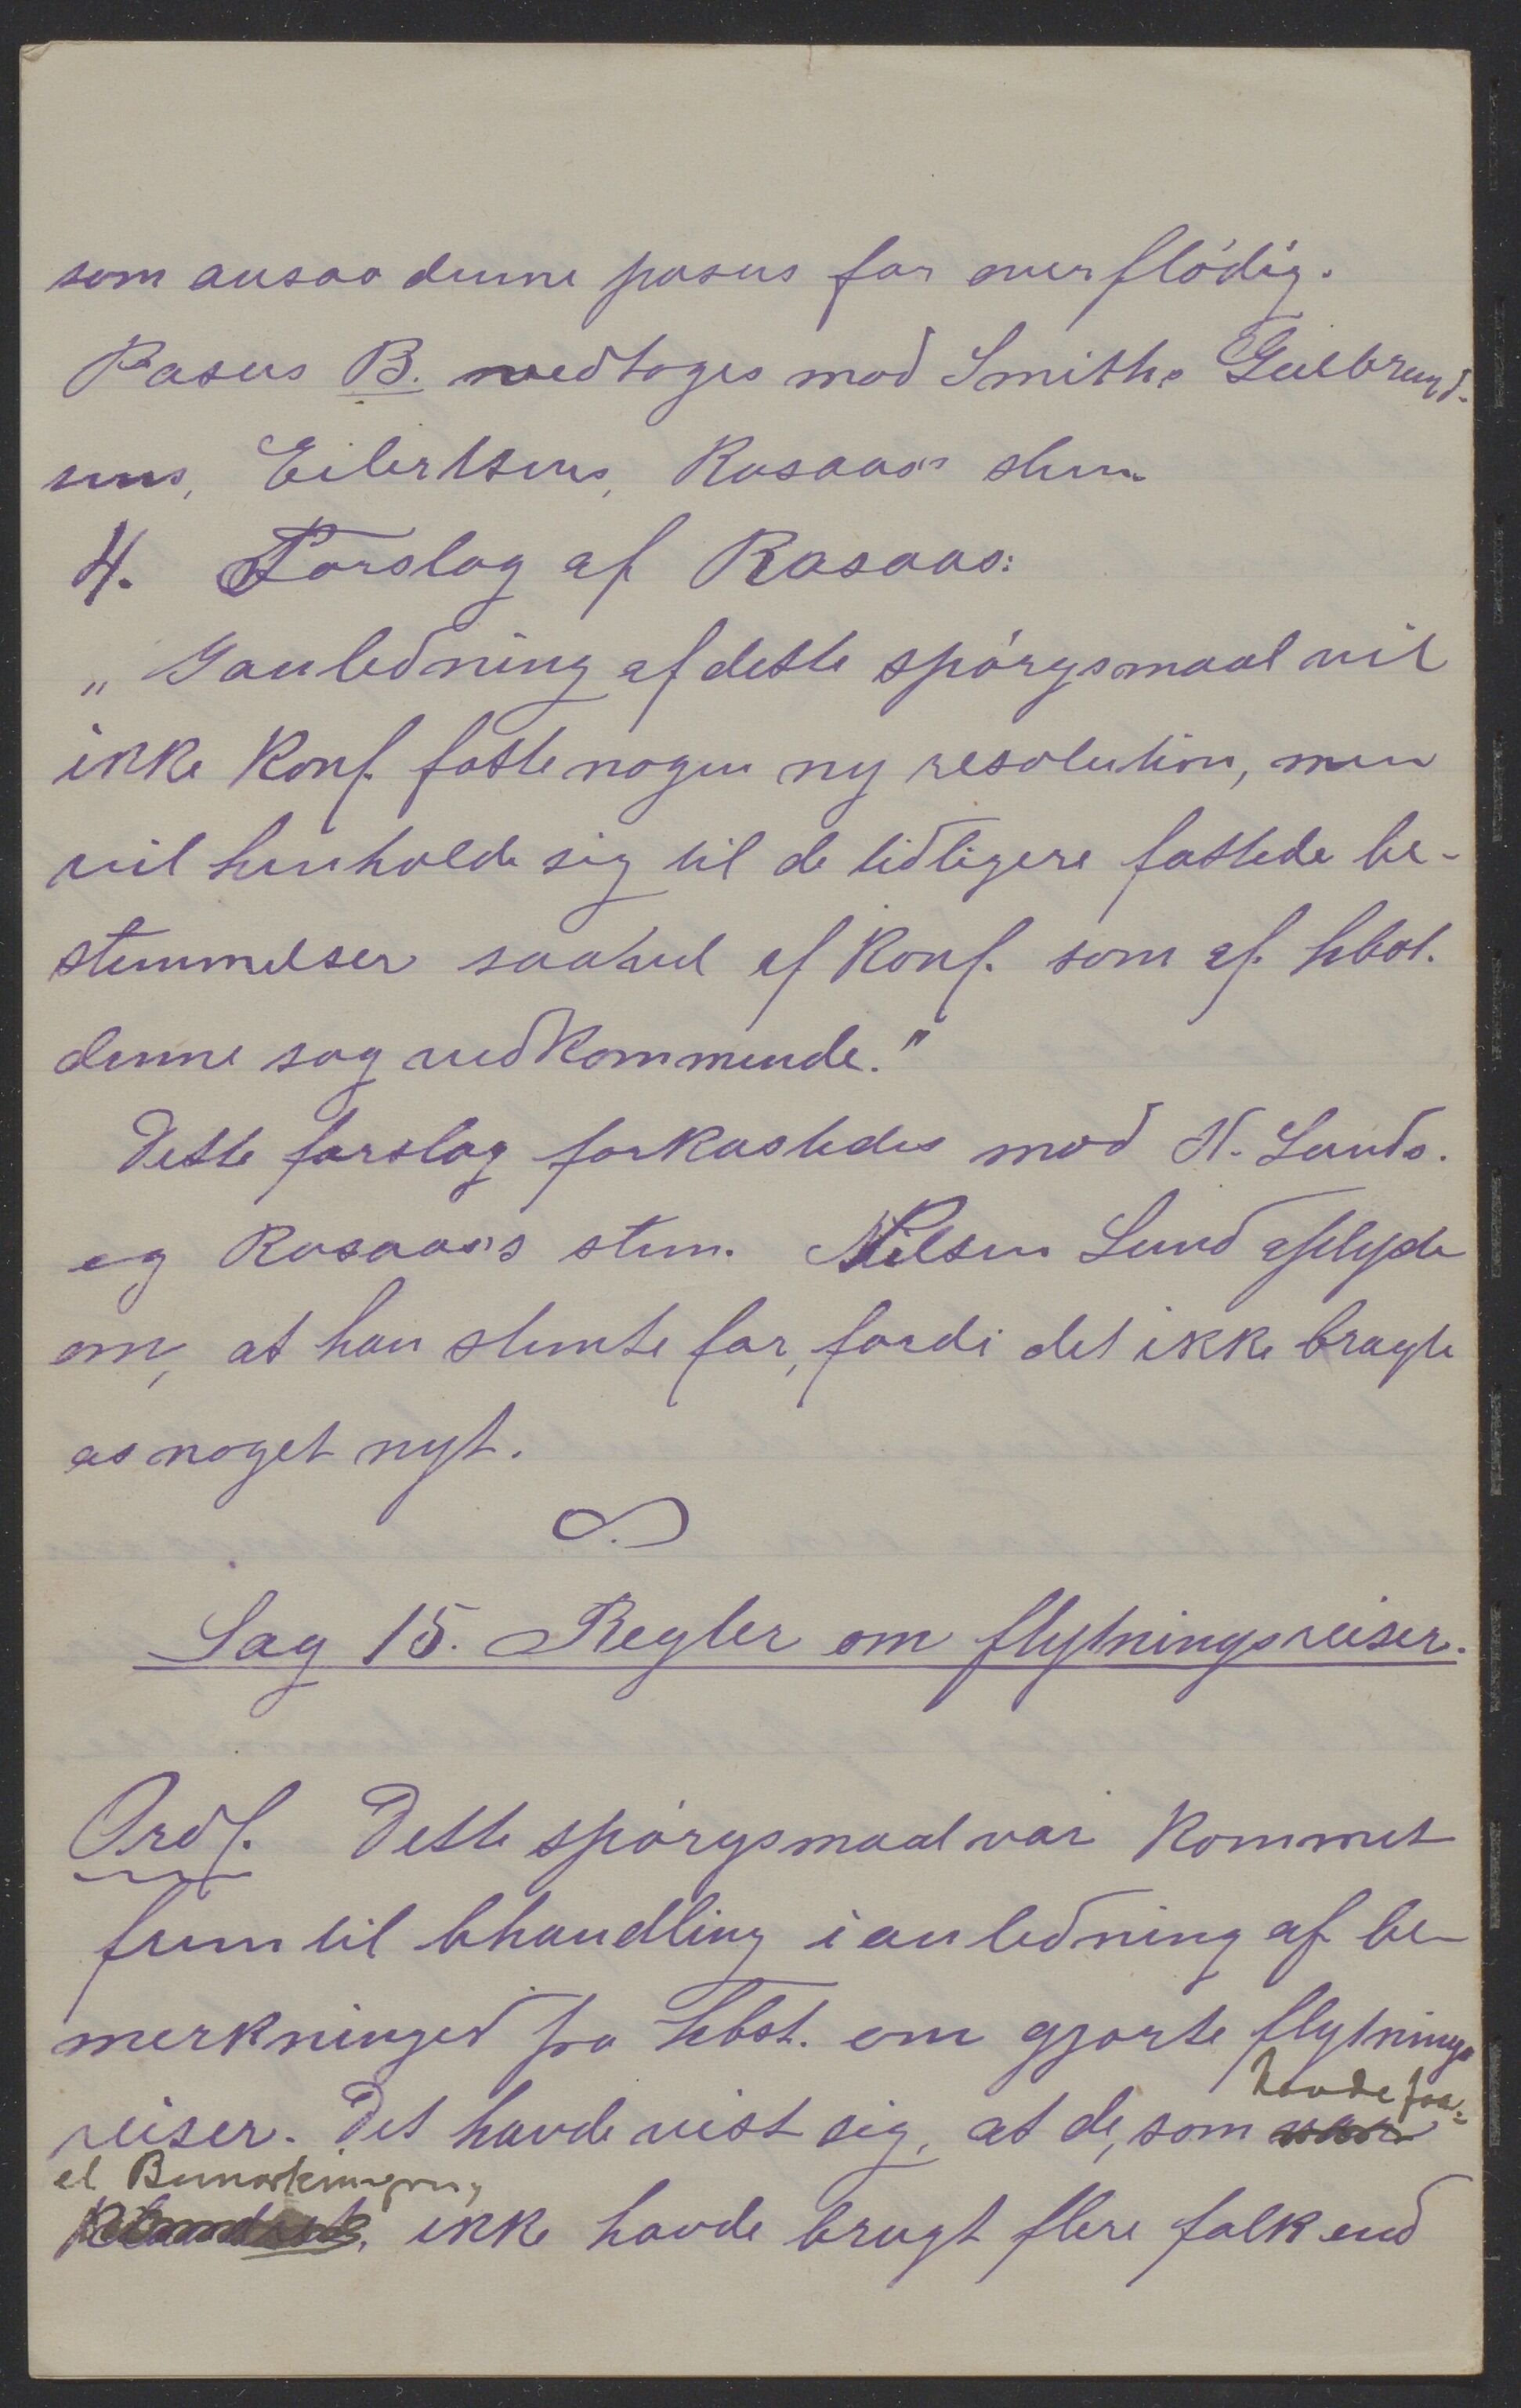 som ansaa denne pasus for overflödig.
Pasus B. vedtoges mod Smiths Gulbrand-
sens, Eilertsens, Rosaas's stem.
4. Forslag af Rosaas:
„I anledning af dette spörgsmaal vil
ikke Konf. fatte nogen ny resolution, men
vil henholde sig til de tidligere fattede be-
stemmelser saavel af Konf. som af hbst.
denne sag vedkommende."
Dette forslag forkastedes mod N. Lunds.
og Rosaas's stem. Nilsen Lund oplyste
om, at han stemte for, fordi det ikke bragte
os noget nyt.
Sag 15. Regler om flytningsreiser.
Ordf. Dette spörgsmaal var kommet
frem til bhandling i anledning af be-
merkninger fra hbst. om gjorte flytnings
reiser. Det havde vist sig, at de, som havde faa-
et Bemærkninger, ikke havde brugt flere folk end